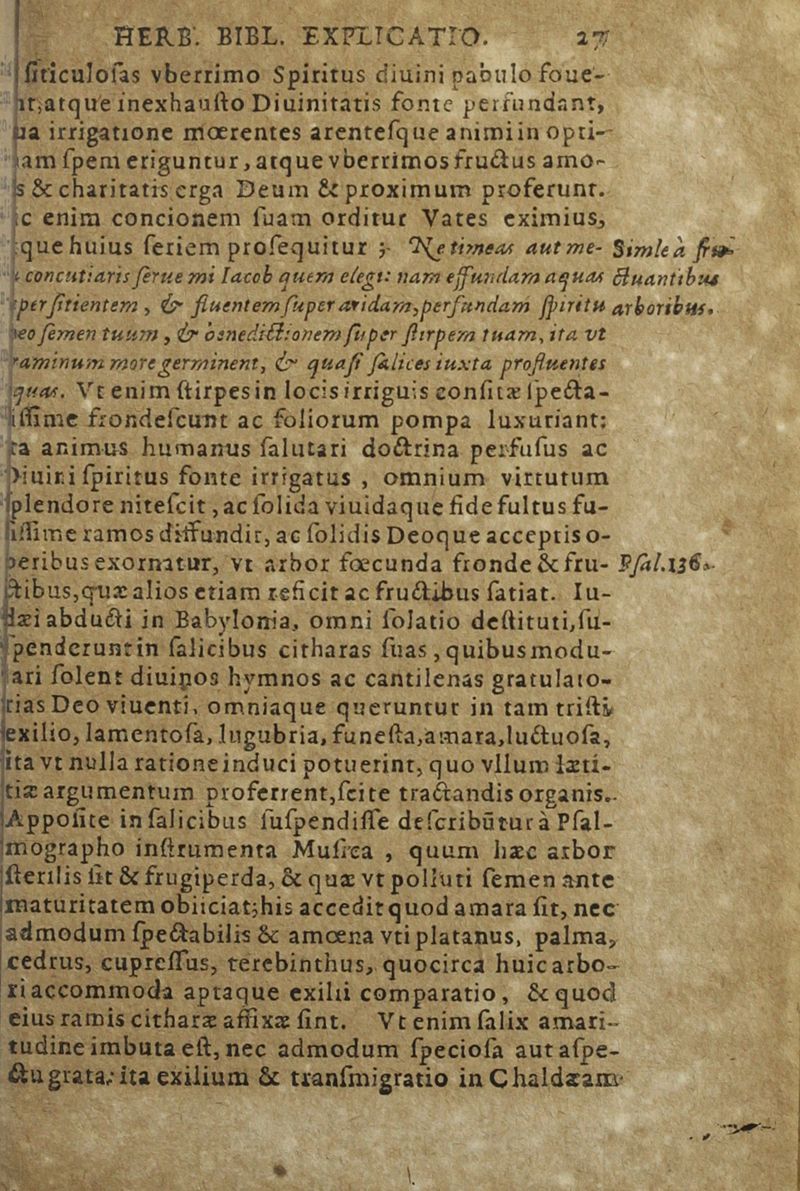 HERB. BIBL. EXPLICATIO. 27
ſiticuloſas vberrimo Spiritus diuini pabulo foue-
atque inexhauſto Diuinitatis fonte perfundant,
irrigatione mœrentes arenteſque animi in opti-
ſpem eriguntur, atque vberrimos fructus amo-
& charitatis erga Deum & proximum proferunt.
enim concionem ſuam orditur Vates eximius,
que huius ſeriem proſequitur ; Ne timeas aut me- Simle à fru-
concutiaris ſerue mi Iacob quem elegi: nam effundam aquas ctuantibus
per ſitientem, & fluentem ſuper aridam, perfundam ſpiritu arboribus.
ſemen tuum, & benedictionem ſuper ſtirpem tuam, ita vt
graminum more germinent, & quaſi ſalices iuxta profluentes
aquas. Vt enim ſtirpes in locis irriguis conſitæ ſpecta-
frondeſcunt ac foliorum pompa luxuriant:
animus humanus ſalutari doctrina perfuſus ac
Diuini ſpiritus fonte irrigatus , omnium virtutum
ſplendore niteſcit , ac ſolida viuidaque fide fultus fu-
ramos diffundit, ac ſolidis Deoque acceptis o-
peribus exornatur, vt arbor fœcunda fronde & fru- Pſal.136.
ctibus, quæ alios etiam reficit ac fructibus ſatiat. Iu-
dæi abducti in Babylonia, omni ſolatio deſtituti, ſu-
ſpenderunt in ſalicibus citharas ſuas , quibus modu-
lari ſolent diuinos hymnos ac cantilenas gratulato-
rias Deo viuenti, omniaque queruntur in tam triſti
exilio, lamentoſa, lugubria, funeſta, amara, luctuoſa,
ita vt nulla ratione induci potuerint, quo vllum læti-
tiæ argumentum proferrent, ſcite tractandis organis.
Appoſite in ſalicibus ſuſpendiſſe deſcribūtur à Pſal-
mographo inſtrumenta Muſica , quum hæc arbor
ſterilis ſit & frugiperda, & quæ vt polluti ſemen ante
maturitatem obiiciat; his accedit quod amara ſit, nec
admodum ſpectabilis & amœna vti platanus, palma,
cedrus, cupreſſus, terebinthus, quocirca huic arbo-
ri accommoda aptaque exilii comparatio , & quod
eius ramis citharæ affixæ ſint. Vt enim ſalix amari-
tudine imbuta eſt, nec admodum ſpecioſa aut aſpe-
ctu grata: ita exilium & tranſmigratio in Chaldæam